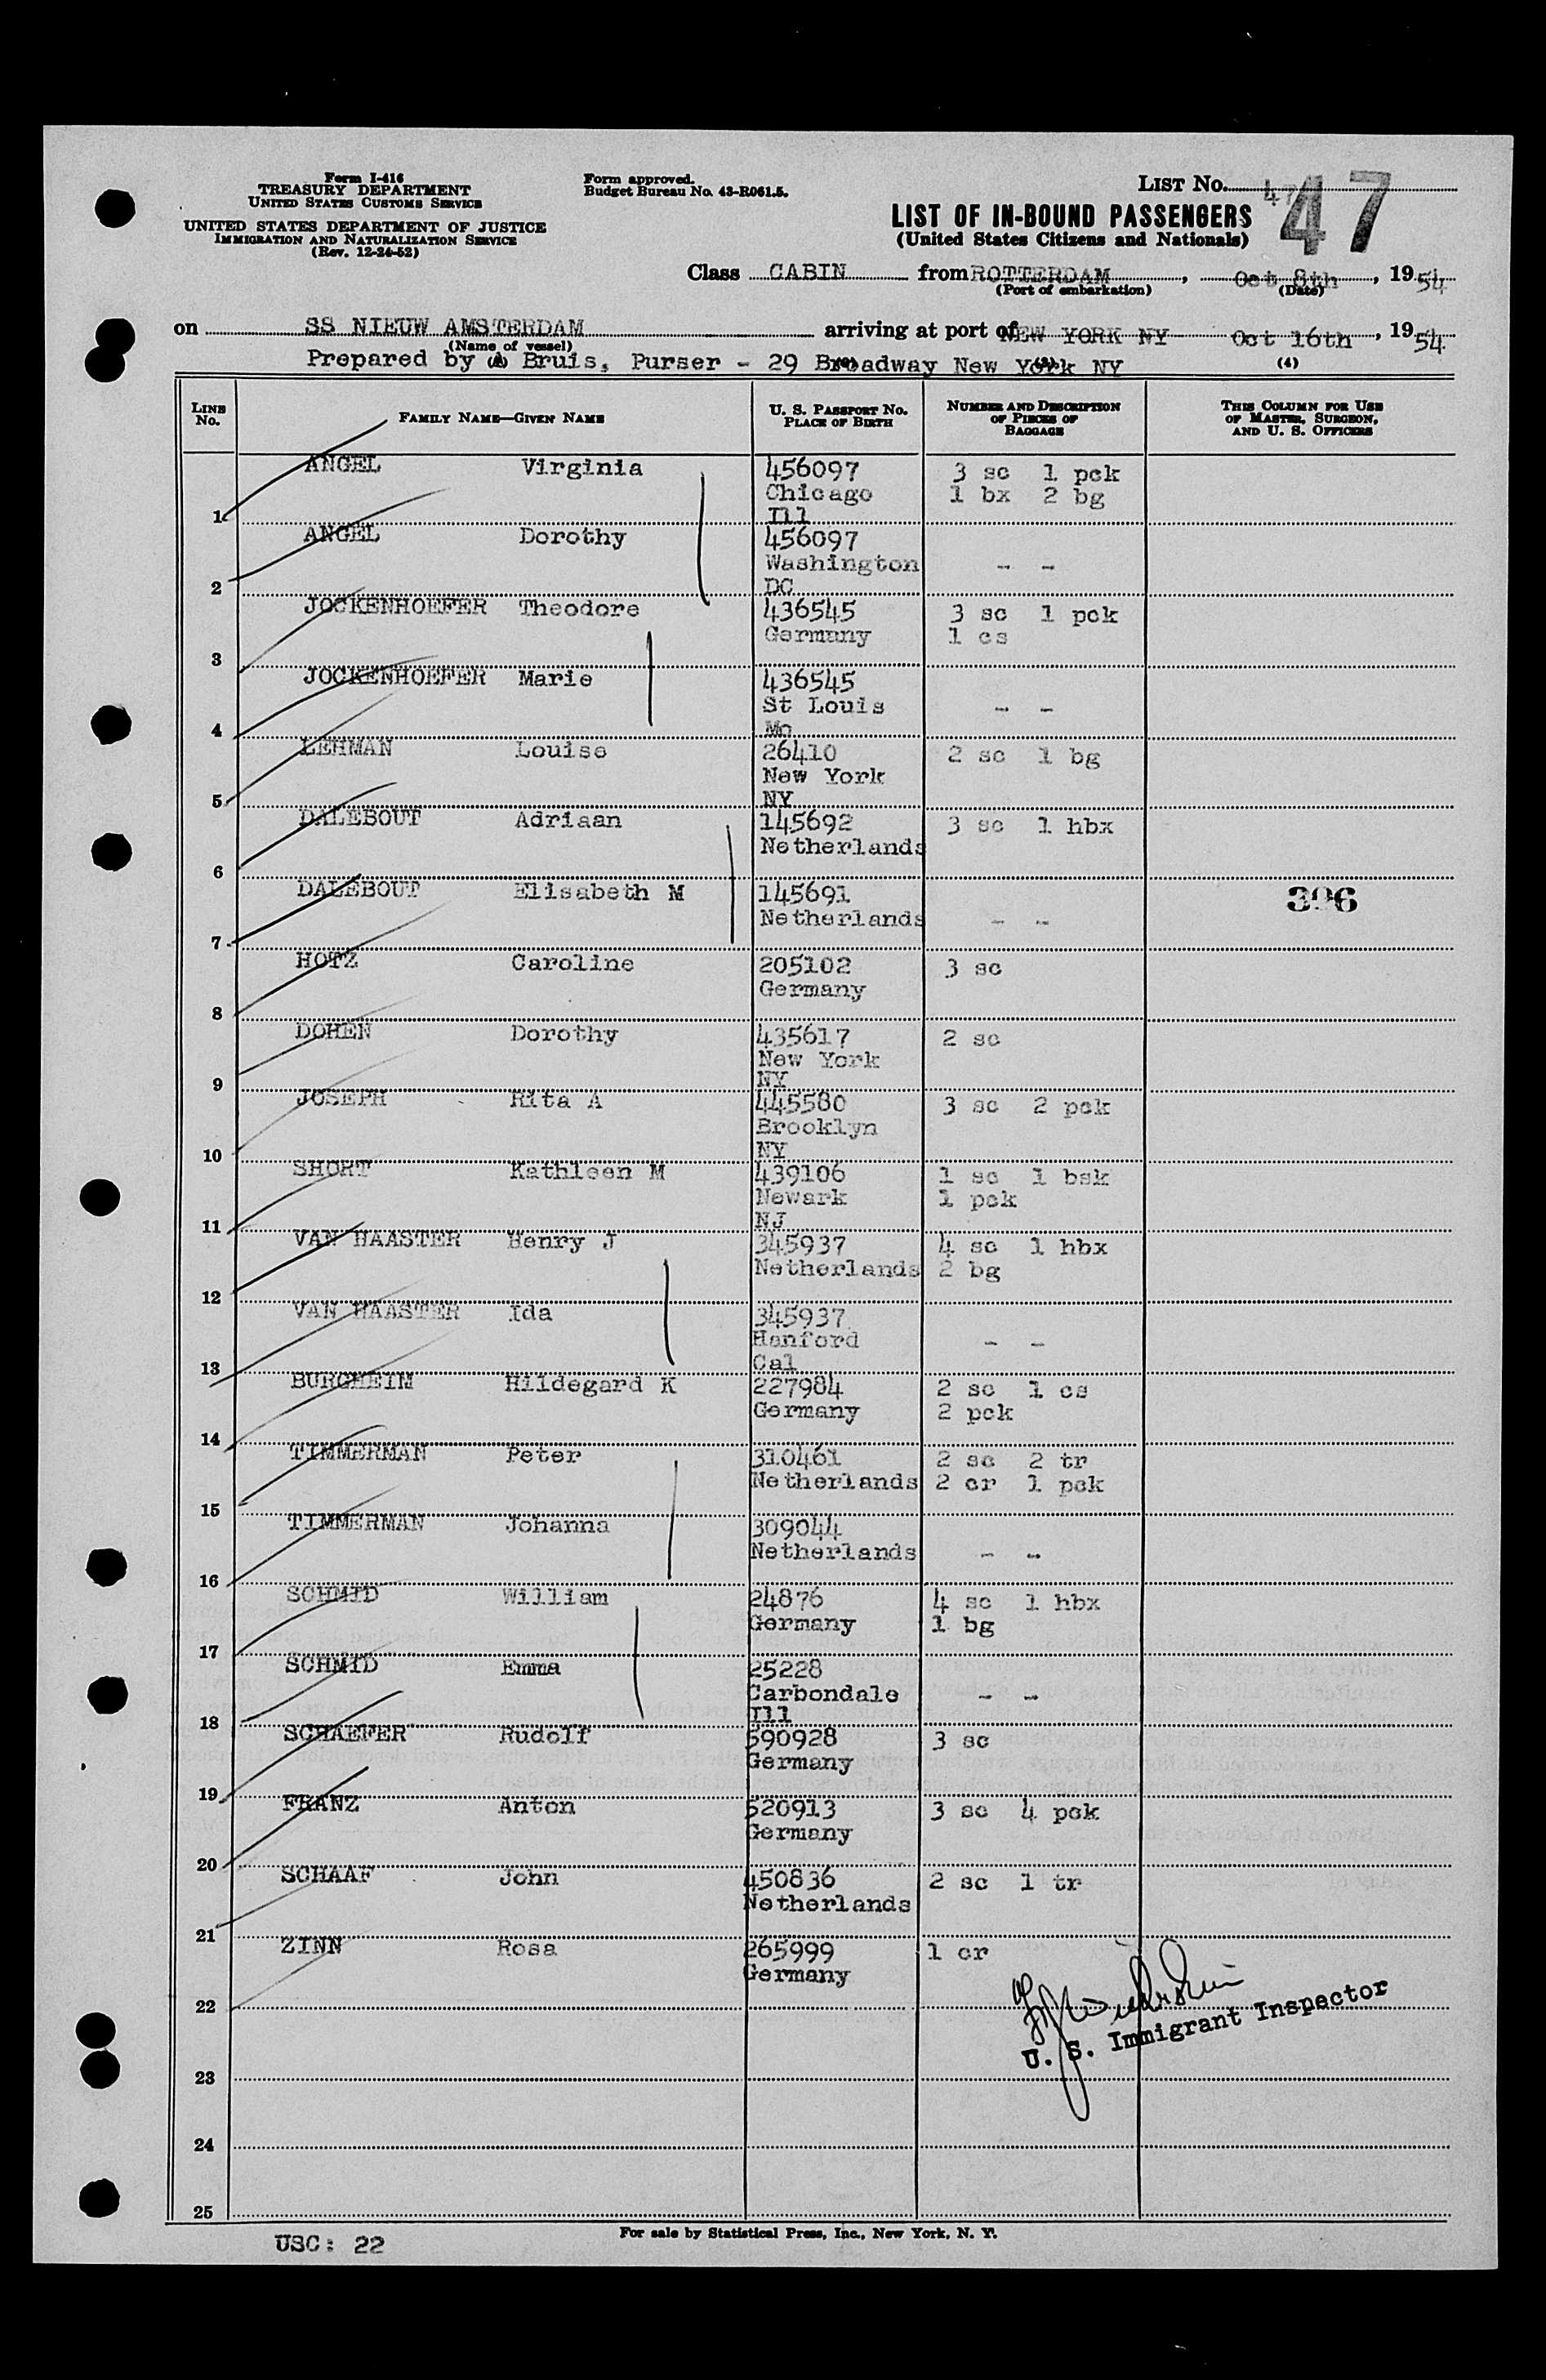 Form I-416
TREASURY DEPARTMENT
UNITED STATES CUSTOMS SERVICE
UNITED STATES DEPARTMENT OF JUSTICE
IMMIGRATION AND NATURALIZATION SERVICE
(Rev. 12-24-52)
Form approved.
Budget Bureau No. 43-R061.5.
LIST No. 47
47
LIST OF IN-BOUND PASSENGERS
(United States Citizens and Nationals)
Class CABIN from ROTTERDAM, Oct 8th, 1954
(Port of embarkation) (Date)
on SS NIEUW AMSTERDAM arriving at port of NEW YORK NY Oct 16th, 1954
(Name of vessel)
Prepared by Bruis, Purser - 29 Broadway New York NY
(4)
LINE No. FAMILY NAME—GIVEN NAME U. S. PASSPORT No. PLACE OF BIRTH NUMBER AND DESCRIPTION OF PIECES OF BAGGAGE THIS COLUMN FOR USE OF MASTER, SURGEON, AND U. S. OFFICERS
ANGEL Virginia 456097 3 sc 1 pck
Chicago 1 bx 2 bg
1 Ill
ANGEL Dorothy 456097
Washington - -
2 DC
JOCKENHOEFER Theodore 436545 3 sc 1 pck
Germany 1 cs
3
JOCKENHOEFER Marie 436545
St Louis - -
4 Mo
LEHMAN Louise 26410 2 sc 1 bg
New York
5 NY
DALEBOUT Adriaan 145692 3 sc 1 hbx
Netherlands
6
DALEBOUT Elisabeth M 145691
Netherlands - -
396
7
HOTZ Caroline 205102 3 sc
Germany
8
DOHEN Dorothy 435617 2 sc
New York
9 NY
JOSEPH Rita A 445580 3 sc 2 pck
Brooklyn
10 NY
SHORT Kathleen M 439106 1 sc 1 bsk
Newark 1 pck
11 NJ
VAN HAASTER Henry J 345937 4 sc 1 hbx
Netherlands 2 bg
12
VAN HAASTER Ida 345937
Hanford - -
13 Cal
BURGHEIM Hildegard K 227984 2 sc 1 cs
Germany 2 pck
14
TIMMERMAN Peter 310461 2 sc 2 tr
Netherlands 2 cr 1 pck
15
TIMMERMAN Johanna 309044
Netherlands - -
16
SCHMID William 24876 4 sc 1 hbx
Germany 1 bg
17
SCHMID Emma 25228
Carbondale - -
18 Ill
SCHAEFER Rudolf 590928 3 sc
Germany
19
FRANZ Anton 520913 3 sc 4 pck
Germany
20
SCHAAF John 450836 2 sc 1 tr
Netherlands
21
ZINN Rosa 265999 1 cr
Germany
22
U. S. Immigrant Inspector
23
24
25
USC: 22
For sale by Statistical Press, Inc., New York, N. Y.